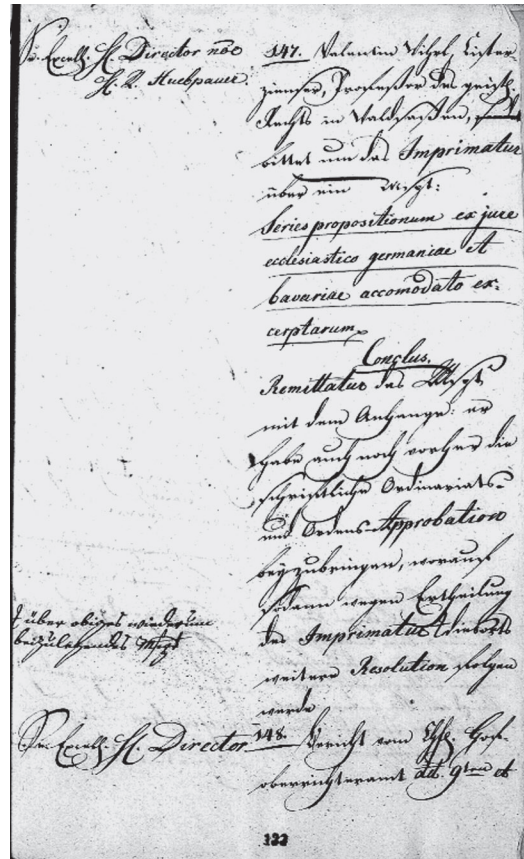 Sr. Excell. H. Director nõe
H. R. Huebpauer.
147. Valentin Vihel, Cister
zienser, Professor des geistl.
Rechts in Waldsassen,
bittet um das Imprimatur
über ein Mspt:
Series propositionum ex jure
ecclesiastico germaniae et
bavariae accomodato ex-
cerptarum
Conclus.
Remittatur das Mspt
mit dem Anhange: er
habe auch noch vorher die
schriftliche Ordinariats-
und Ordens-Approbation
beyzubringen, worauf
sodann wegen Ertheilung
des Imprimatur † diesorts
weitere Resolution folgen
werde
† über obiges wiederum
beizulegendes Mspt
Sr. Excell. H. Director
148. Bericht vom Chfl. Hof-
oberrichteramt dd. 9ten et
133